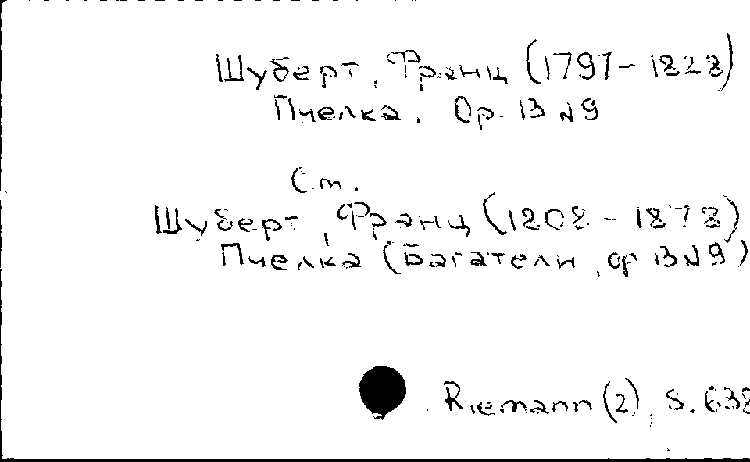 Шуберт, Франц (1797-1828)
Пчелка. Op. 13 №9
См.
Шуберт, Франц (1808-1878)
Пчелка (Багатели, op 13 №9)
Riemann (2), S. 638